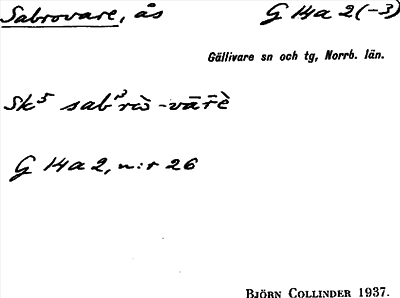 Sabrovare, ås G 14a 2(-3)
Gällivare sn och tg, Norrb. län.
G 14a 2, n:r 26
BJÖRN COLLINDER 1937.